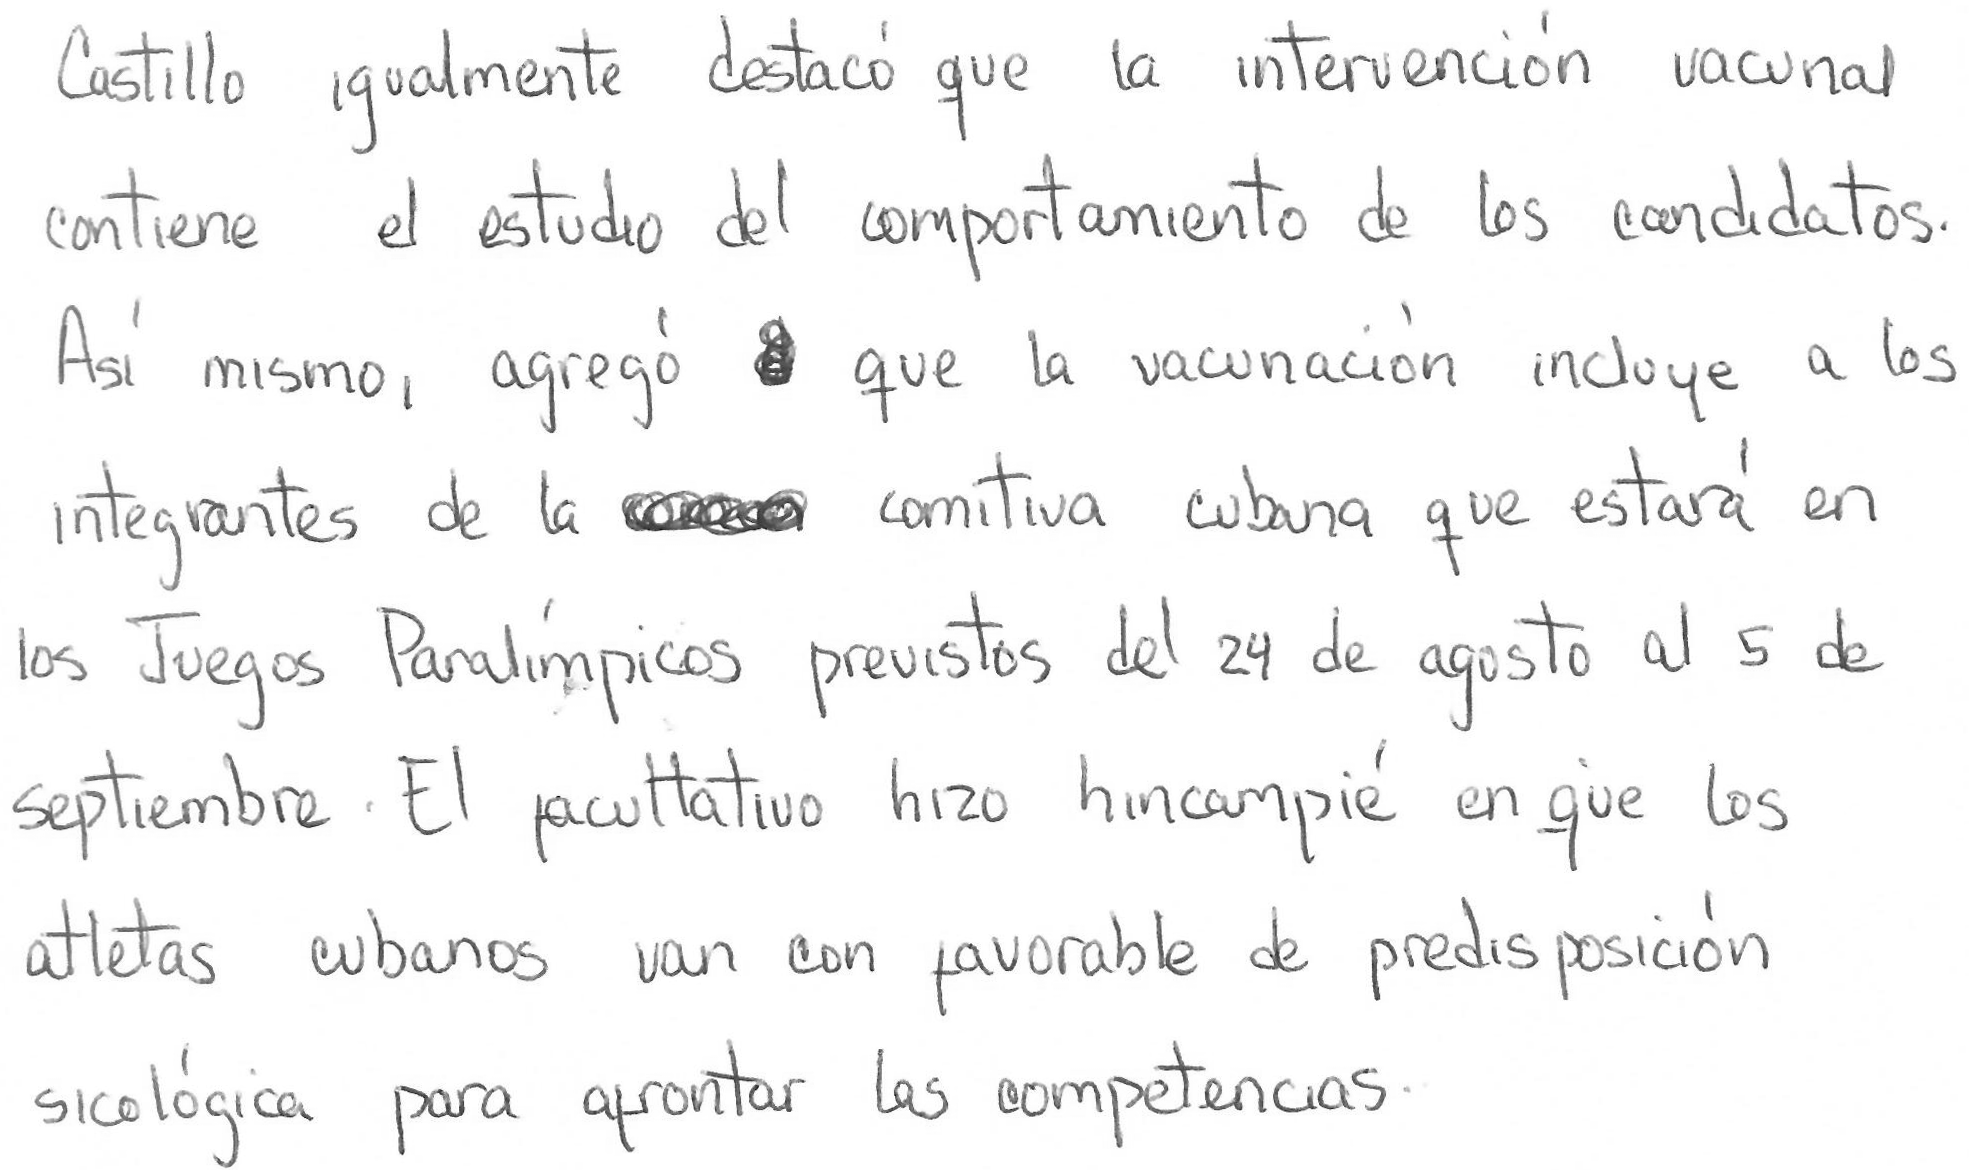 Castillo igualmente destacó que la intervención vacunal
contiene el estudio del comportamiento de los candidatos.
Así mismo, agregó que la vacunación incluye a los
integrantes de la comitiva cubana que estará en
los Juegos Paralímpicos previstos del 24 de agosto al 5 de
septiembre. El facultativo hizo hincampié en que los
atletas cubanos van con favorable de predisposición
sicológica para afrontar las competencias.